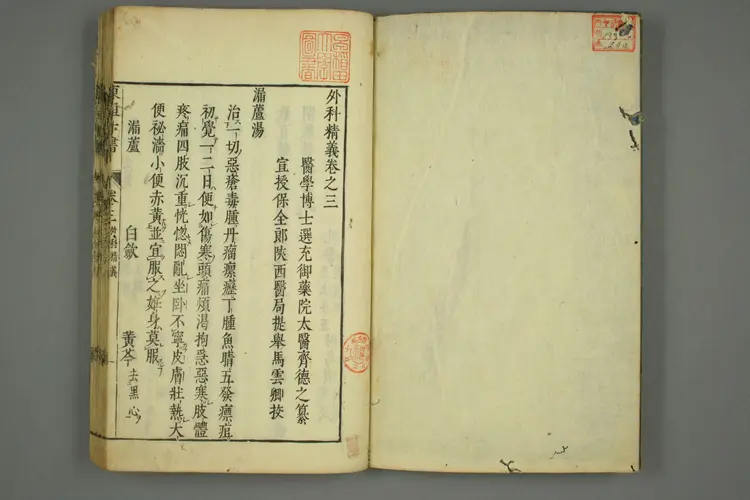 外科精義卷之三
醫學博士選充御藥院太醫齊德之纂
宣授保全郎陝西醫局提舉馬雲卿挍
漏蘆湯
治一切惡瘡毒腫丹瘤瘰癧丁腫魚睛五發癀疽
初覺一二日便如傷寒頭痛煩渴拘急惡寒肢體
疼痛四肢沉重恍惚悶亂坐卧不寧皮膚壯熱大
便祕濇小便赤黃並宜服之妊身莫服
漏蘆 白斂 黃芩去黑心
東垣十書 卷三